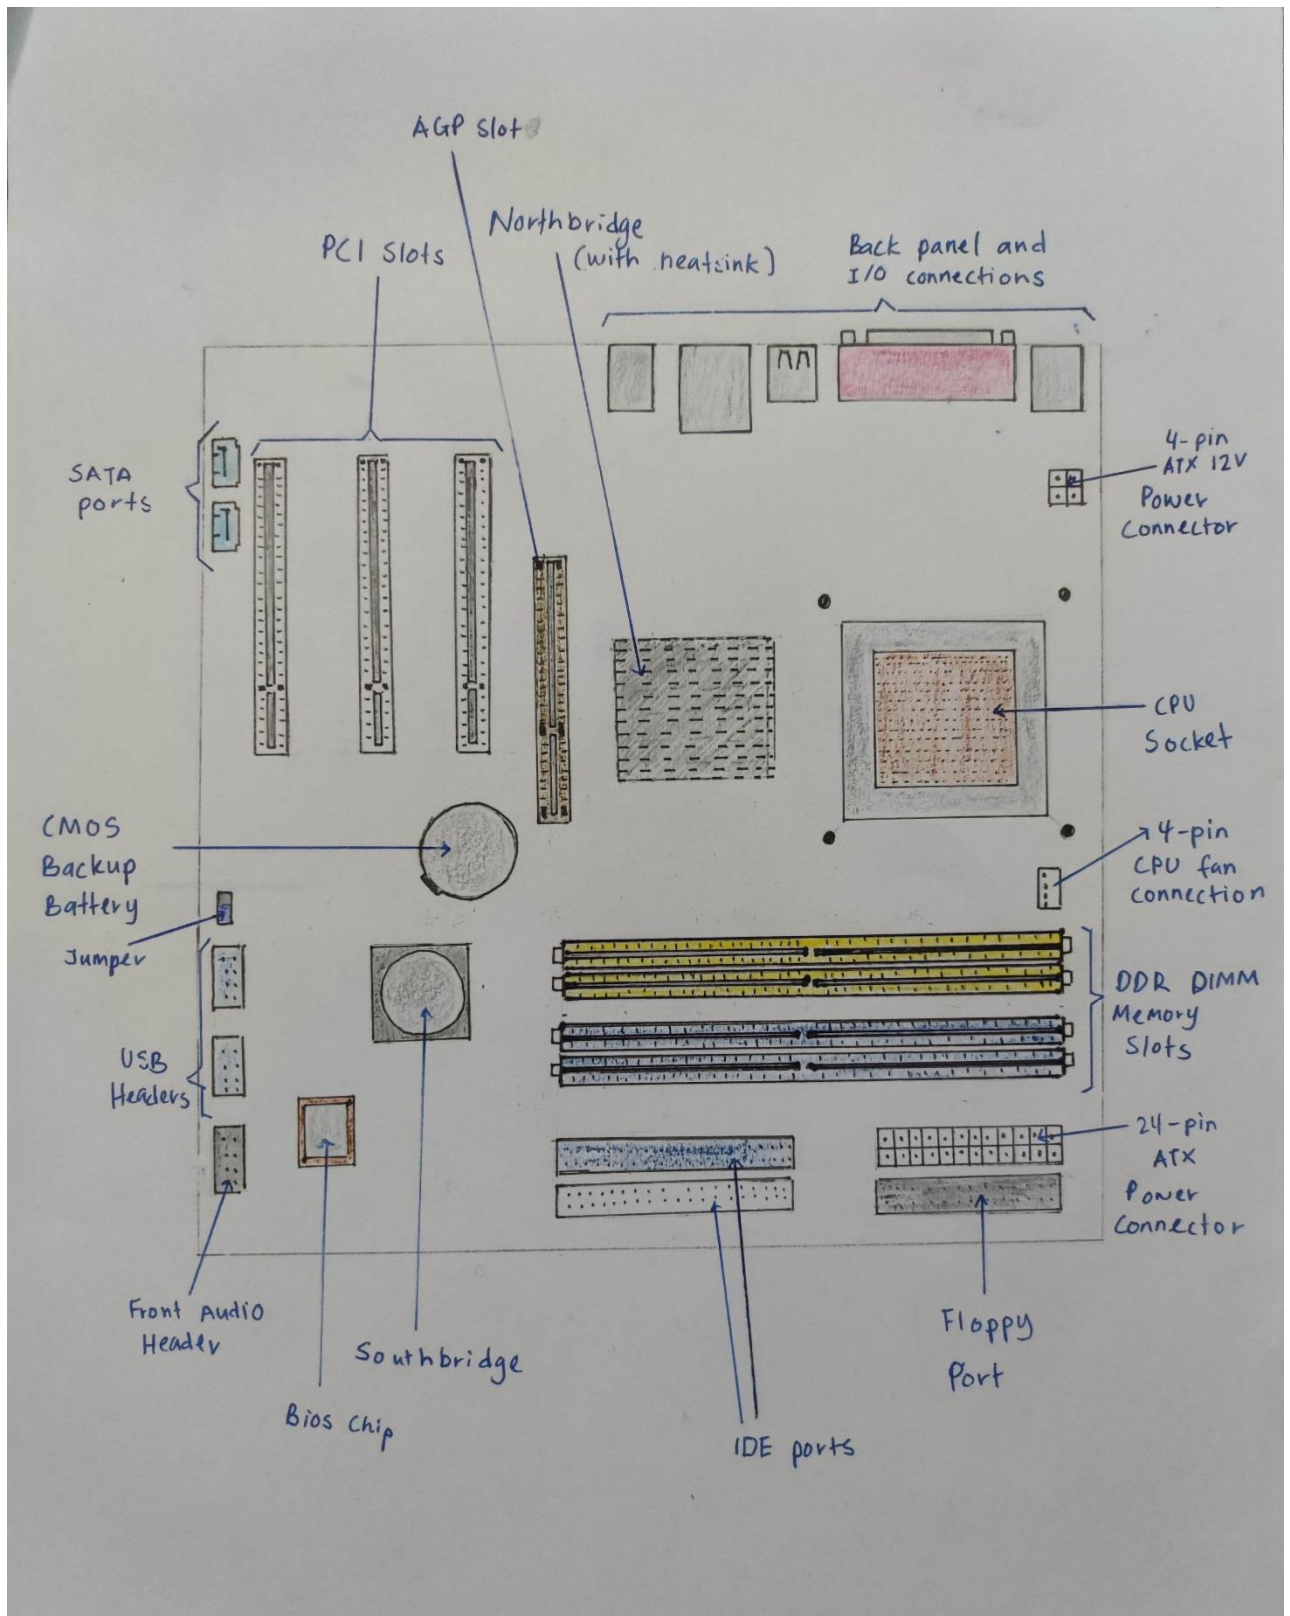 AGP Slot
Northbridge
(with heatsink)
PCI Slots
Back panel and
I/O connections
4-pin
ATX 12V
Power
Connector
SATA
ports
CPU
Socket
CMOS
Backup
Battery
4-pin
CPU fan
connection
Jumper
DDR DIMM
Memory
Slots
USB
Headers
24-pin
ATX
Power
Connector
Front Audio
Header
Southbridge
Floppy
Port
Bios Chip
IDE ports